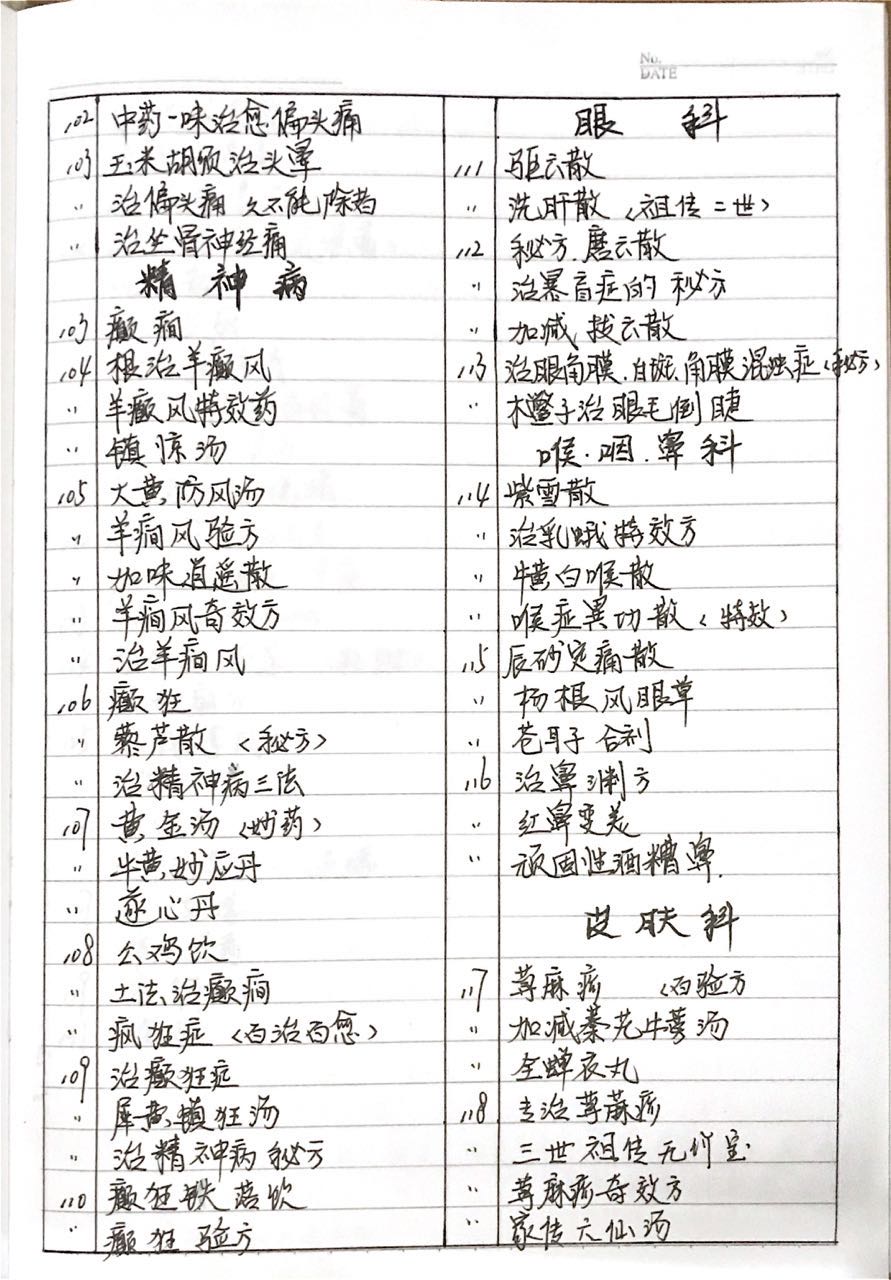 No.
DATE
102 中药一味治愈偏头痛
103 玉米胡须治头晕
〃 治偏头痛 久不能除者
〃 治坐骨神经痛
精神病
103 癫痫
104 根治羊癫风
〃 羊癫风特效药
〃 镇惊汤
105 大黄防风汤
〃 羊痫风验方
〃 加味逍遥散
〃 羊痫风奇效方
〃 治羊痫风
106 癫狂
〃 藜芦散〈秘方〉
〃 治精神病三法
107 黄金汤〈妙药〉
〃 牛黄妙应丹
〃 遂心丹
108 公鸡饮
〃 土法治癫痫
〃 疯狂症〈百治百愈〉
109 治癫狂症
〃 犀黄镇狂汤
〃 治精神病秘方
110 癫狂铁落饮
〃 癫狂验方
眼科
111 驱云散
〃 洗肝散〈祖传二世〉
112 秘方.磨云散
〃 治暴盲症的秘方
〃 加减拨云散
113 治眼角膜.白斑.角膜混浊症〈秘方〉
〃 木鳖子治眼毛倒睫
喉.咽.鼻科
114 紫雪散
〃 治乳蛾特效方
〃 白喉散
〃 喉症异功散〈特效〉
115 辰砂定痛散
〃 杨根风眼草
〃 苍耳子合剂
116 治鼻渊方
〃 红鼻变美
〃 顽固性酒糟鼻.
皮肤科
117 荨麻疹 〈百验方
〃 加减秦艽牛蒡汤
〃 全蝉衣丸
118 专治荨麻疹
〃 三世祖传无价宝
〃 荨麻疹奇效方
〃 家传六仙汤